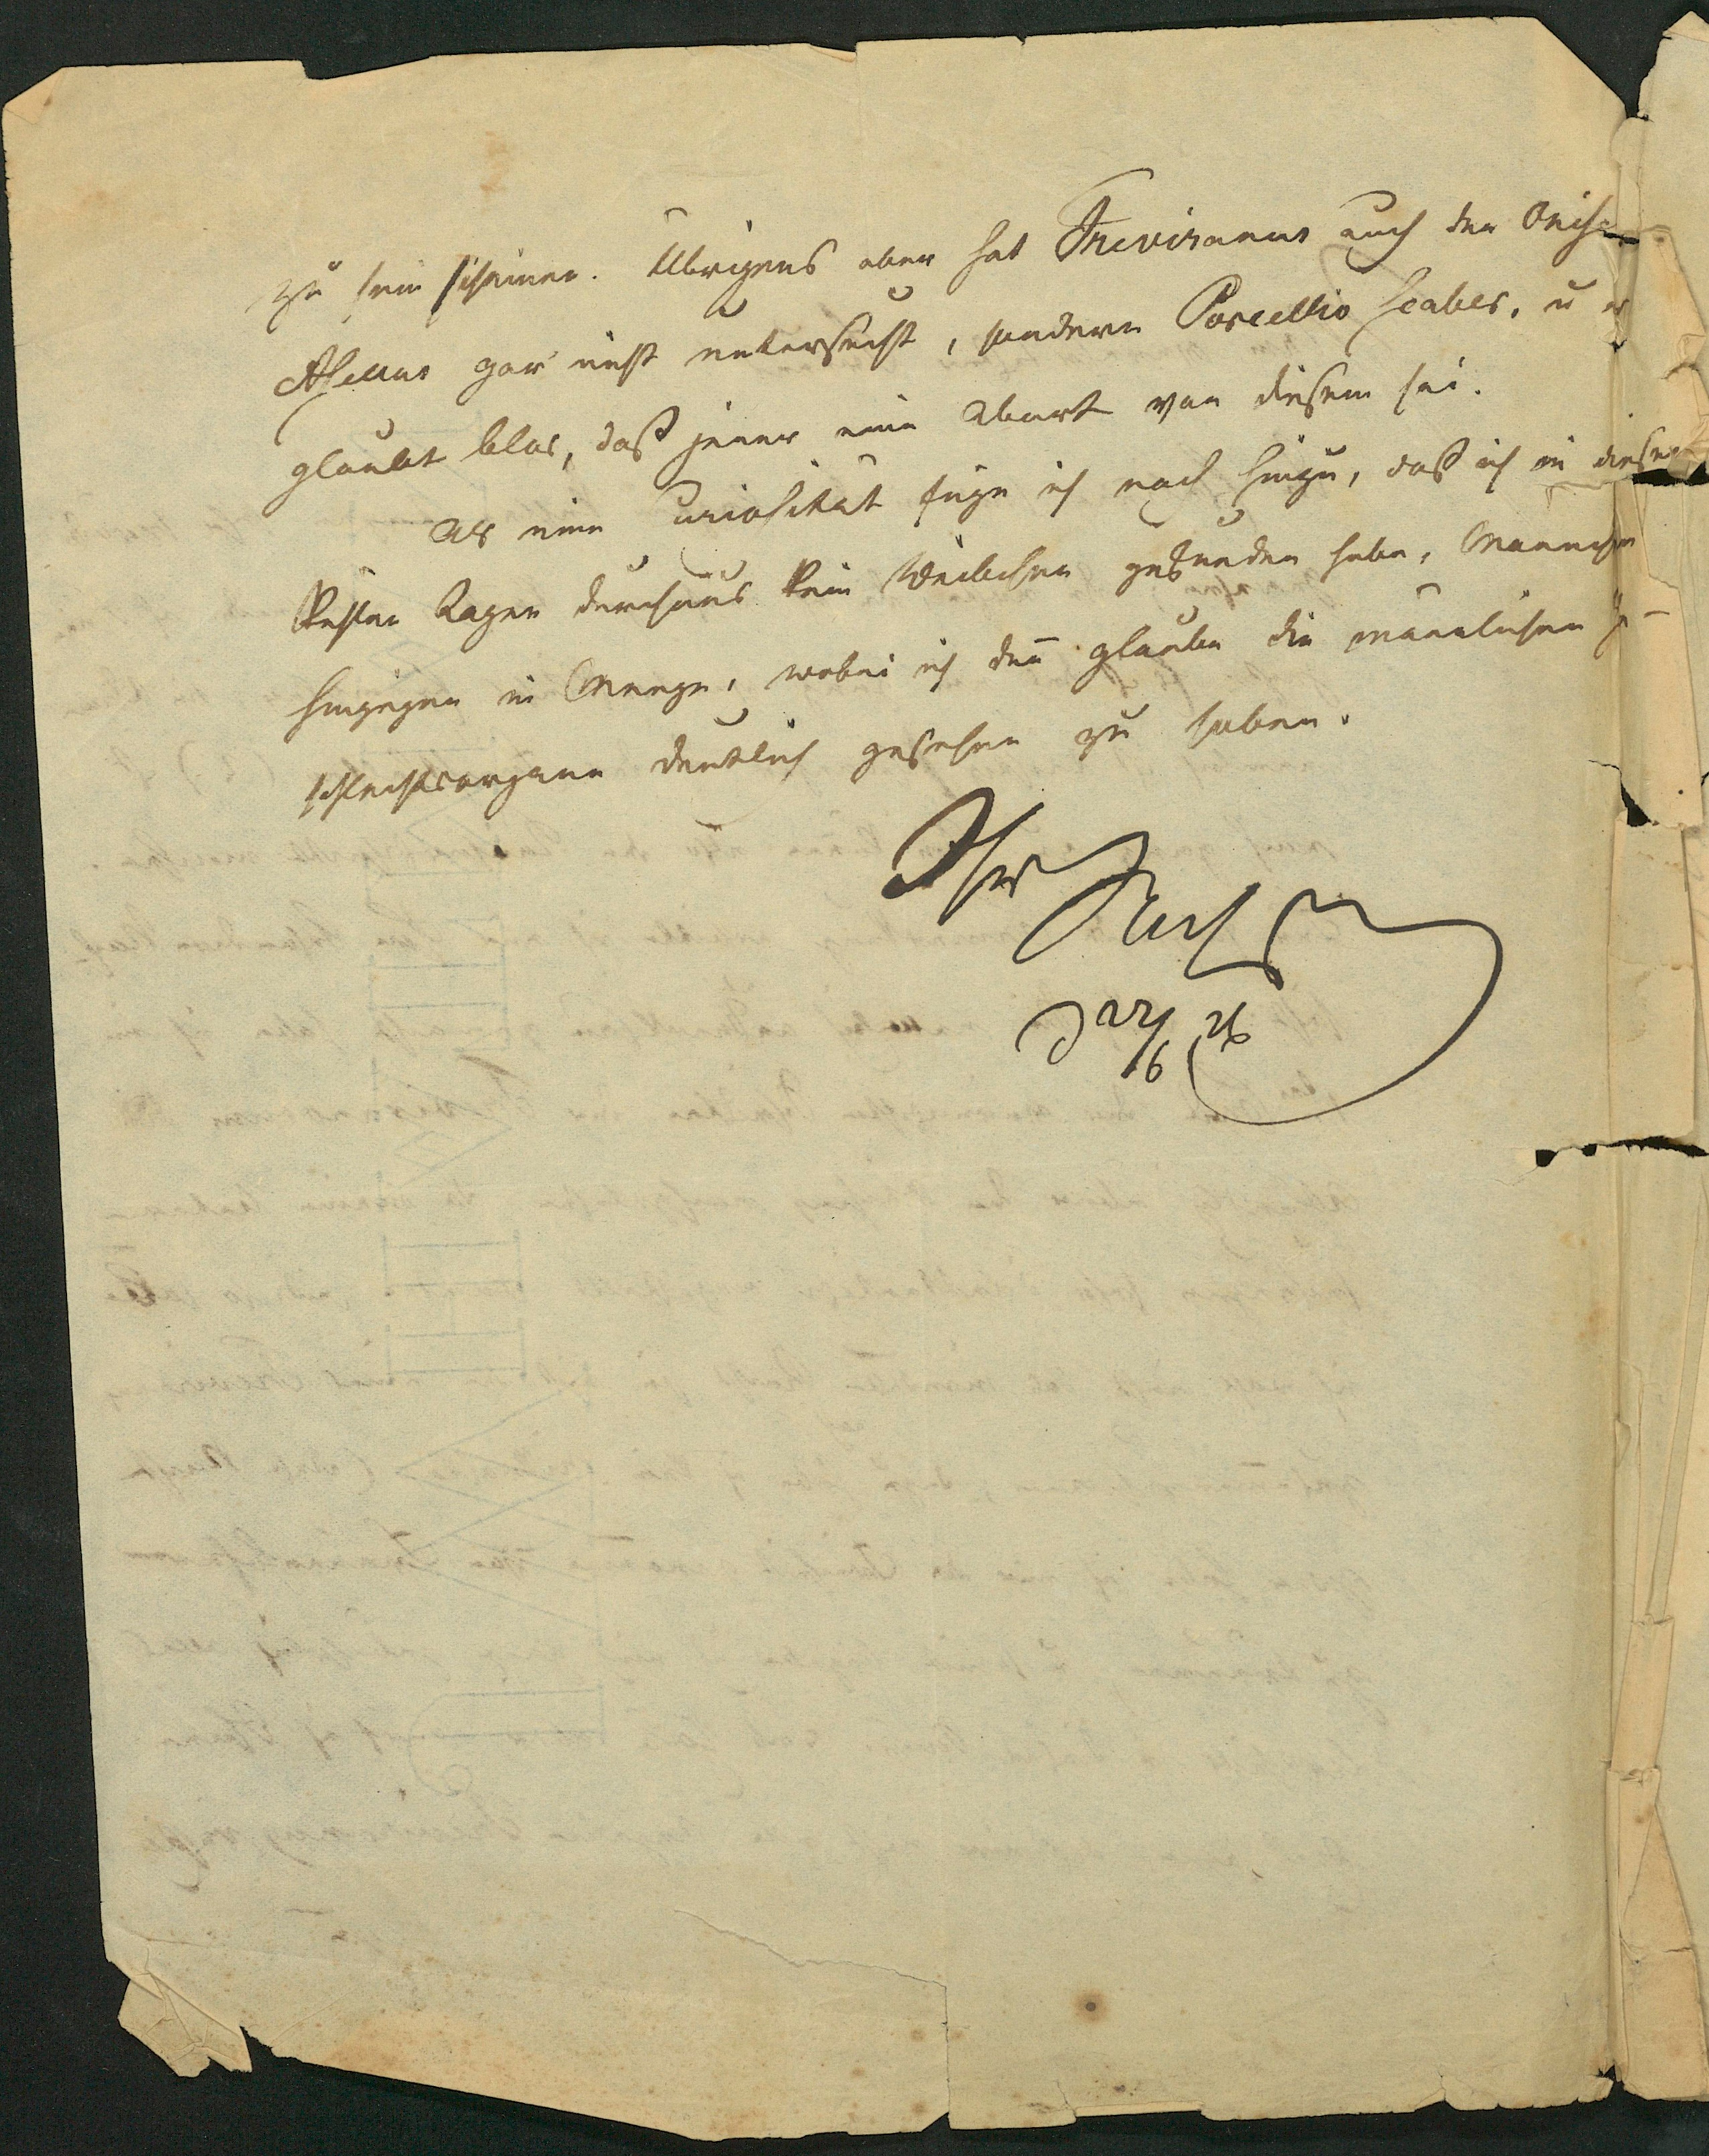 zu sein scheinen. Übrigens aber hat Treviranus auch den Onisc
Asellus gar nicht untersucht, sondern Porcellio scaber, u er
glaubt blos, daß jener eine Abart von diesem sei.
Als eine Curiosität füge ich noch hinzu, daß ich in diesen
Tagen durchaus kein Weibchen gefunden habe, Männchen
hingegen in Menge, wobei ich den̅ glaube die männlichen Ge-
schlechtsorgane deutlich gesehen zu haben.
Ihr